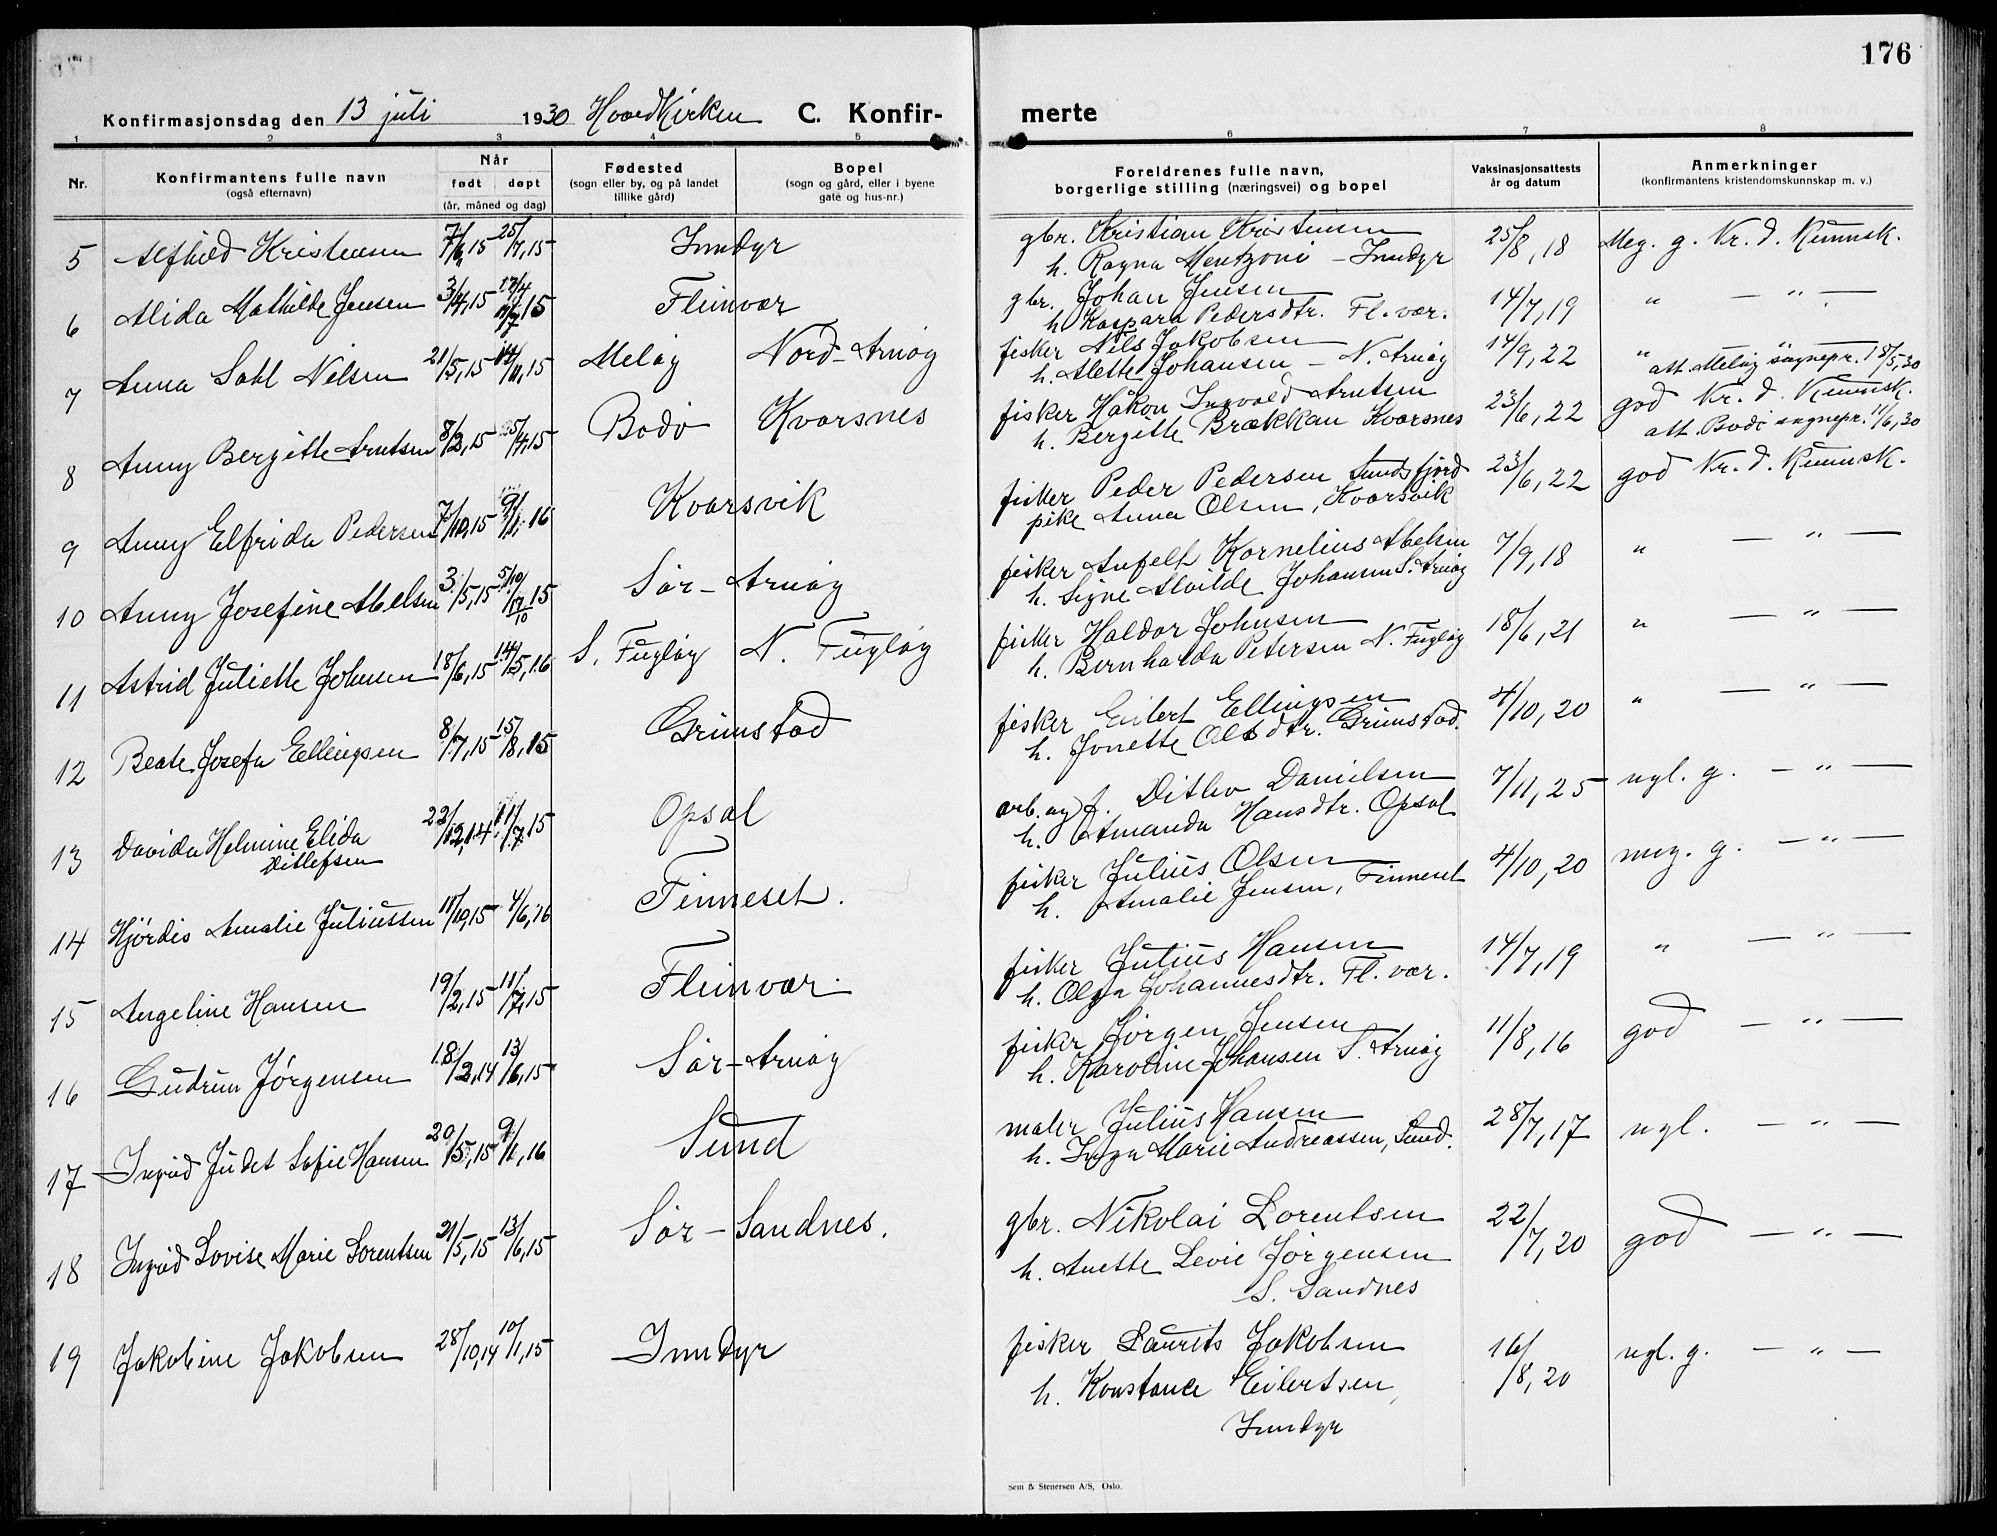 176
Konfirmasjonsdag den 13 juli 1930 Hovedkirken C. Konfir- merte
1 2 3 4 5 6 7 8
Nr.
Konfirmantens fulle navn
(også efternavn)
Når
født døpt
(år, måned og dag)
Fødested
(sogn eller by, og på landet
tillike gård)
Bopel
(sogn og gård, eller i byene
gate og hus-nr.)
Foreldrenes fulle navn,
borgerlige stilling (næringsvei) og bopel
Vaksinasjonsattests
år og datum
Anmerkninger
(konfirmantens kristendomskunnskap m. v.)
5 Alfhild Kristensen 7/6,15 25/7,15 Inndyr
gbr. Kristian Kristensen
h. Ragna Mentzoni - Inndyr 25/8,18 Meg. g. Kr. d. Kunnsk.
6 Alida Mathilde Jensen 3/4,15 Fleinvær
gbr. Johan Jensen
h. Kaspara Pedersdtr. Fl. vær. 14/7,19 " — " —
7 Anna Sabl Nilsen 21/5,15 14/11,15 Meløy Nord-Arnøy
fisker Nils Jakobsen
h. Alette Johansen - N. Arnøy 14/9,22 " "
att. Meløy sognepr. 18/5,30
8 Anny Bergitte Arntsen 8/2,15 5/4,15 Bodø Kvarsnes
fisker Håkon Ingvald Arntsen
h. Bergitte Brækkan Kvarsnes 23/6,22 god Kr. d. Kunnsk.
att. Bodø sognepr. 11/6,30
9 Anny Elfrida Pedersen 7/10,15 9/1,16 Kvarsvik
fisker Peder Pedersen Sundsfjord
pike Anna Olsen, Kvarsvik 23/6,22 god Kr. d. Kunnsk.
10 Anny Josefine Abelsen 3/5,15 5/10 17/10 15 Sør-Arnøy
fisker Anfelt Kornelius Abelsen
h. Signe Alvilde Johansen S. Arnøy 7/9,18 " — " —
11 Astrid Juliette Johnsen 18/6,15 14/5,16 S. Fugløy N. Fugløy
fisker Haldor Johnsen
h. Bernharda Petersen N. Fugløy 18/6,21 " — " —
12 Beate Josefa Ellingsen 8/7,15 15/8,15 Grimstad
fisker Eilert Ellingsen
h. Jonette Olsdtr. Grimstad. 4/10,20 " — " —
13 Davida Helmine Elida
Ditlefsen 22/12,14 11/7,15 Opsal
arb. og f. Ditlev Danielsen
h. Amanda Hansdtr. Opsal 7/11,25 ngl. g. — " —
14 Hjørdis Amalie Juliussen 11/10,15 4/6,16 Finneset.
fisker Julius Olsen
h. Amalie Jensen, Finneset 4/10,20 meg. g. — " —
15 Angeline Hansen 19/2,15 11/7,15 Fleinvær.
fisker Julius Hansen
h. Olga Johannesdtr. Fl. vær. 14/7,19 " — " —
16 Gudrun Jørgensen 18/2,14 13/6,15 Sør-Arnøy
fisker Jørgen Jensen
h. Karoline Johansen S. Arnøy 11/8,16 god — " —
17 Ingrid Judet Sofie Hansen 20/5,15 9/1,16 Sund
maler Julius Hansen
h. Inga Marie Andreassen, Sund. 28/7,17 ngl. — " —
18 Ingrid Lovise Marie Lorentsen 21/5,15 13/6,15 Sør-Sandnes.
gbr. Nikolai Lorentsen
h. Anette Levie Jørgensen
S. Sandnes 22/7,20 god — " —
19 Jakobine Jakobsen 28/10,14 10/1,15 Inndyr
fisker Laurits Jakobsen
h. Konstance Eilertsen,
Inndyr 16/8,20 ngl. g. — " —
Sem & Stenersen A/S, Oslo.